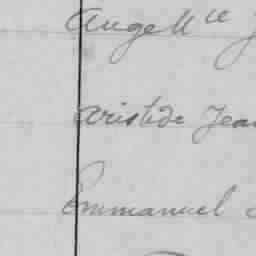 Angell ce J
Aristide Jean
Emmanuel